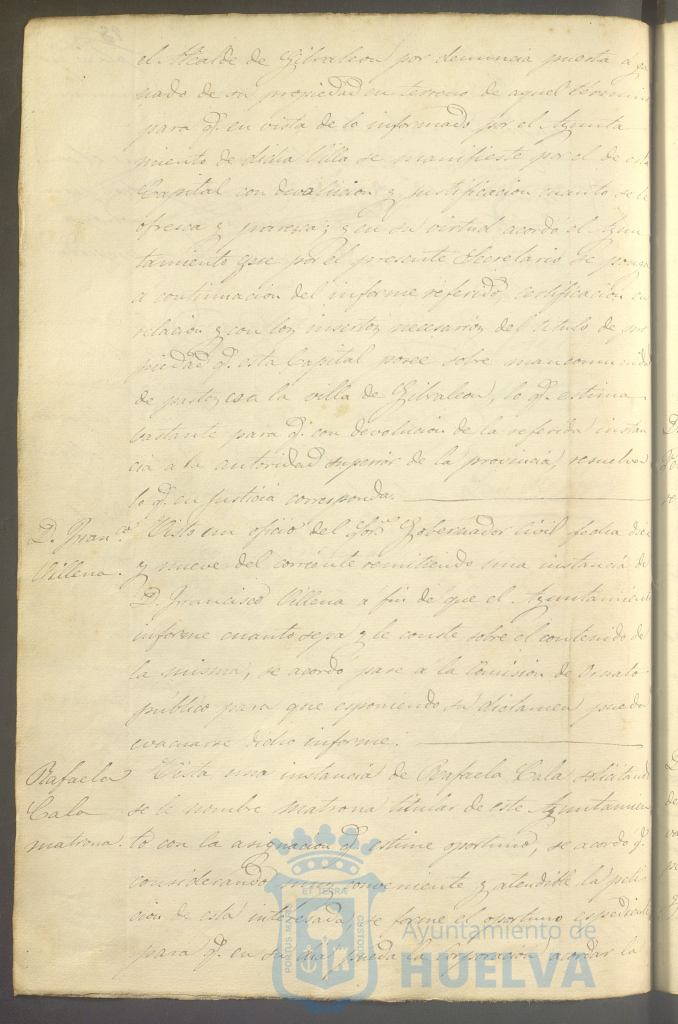 el Alcalde de Gibraleon por denuncia puesta á ga
nado de su propiedad en terreno de aquel término
para q.e en vista de lo informado por el Ayunta
miento de dicha Villa se manifieste por el de esta
Capital con devolucion y justificacion cuanto se le
ofresca y paresca; y en su virtud acordó el Ayun
tamiento que por el presente Secretario se ponga
a continuacion del informe referido, certificacion en
relacion y con los insertos necesarios del titulo de pro
piedad q.e esta Capital posee sobre mancomunidad
de pastos con la villa de Gibraleon, lo q.e estima
bastante para q.e con devolucion de la referida instan
cia a la autoridad superior de la provincia, resuelva
lo q.e en justicia corresponda.
D. Fran.co
Villena.
Visto un oficio del Sor. Gobernador Civil fecha diez
y nueve del corriente remitiendo una instancia de
D. Francisco Villena a fin de que el Ayuntamiento
informe cuanto sepa y le conste sobre el contenido de
la misma, se acordó pase a la Comision de Ornato
público para que esponiendo su dictamen pueda
evacuarse dicho informe.
Rafaela
Cala
matrona.
Vista una instancia de Rafaela Cala solicitando
se le nombre matrona titular de este Ayuntamien
to con la asignacion q.e estime oportuno, se acordó q.e
considerando muy conveniente y atendible la peti
cion de esta interesada, se forme el oportuno espediente
para q.e en su dia pueda la Corporacion acordar la
Ayuntamiento de
HUELVA
PORTUS MARIS
ET TERRÆ
CUSTODIA